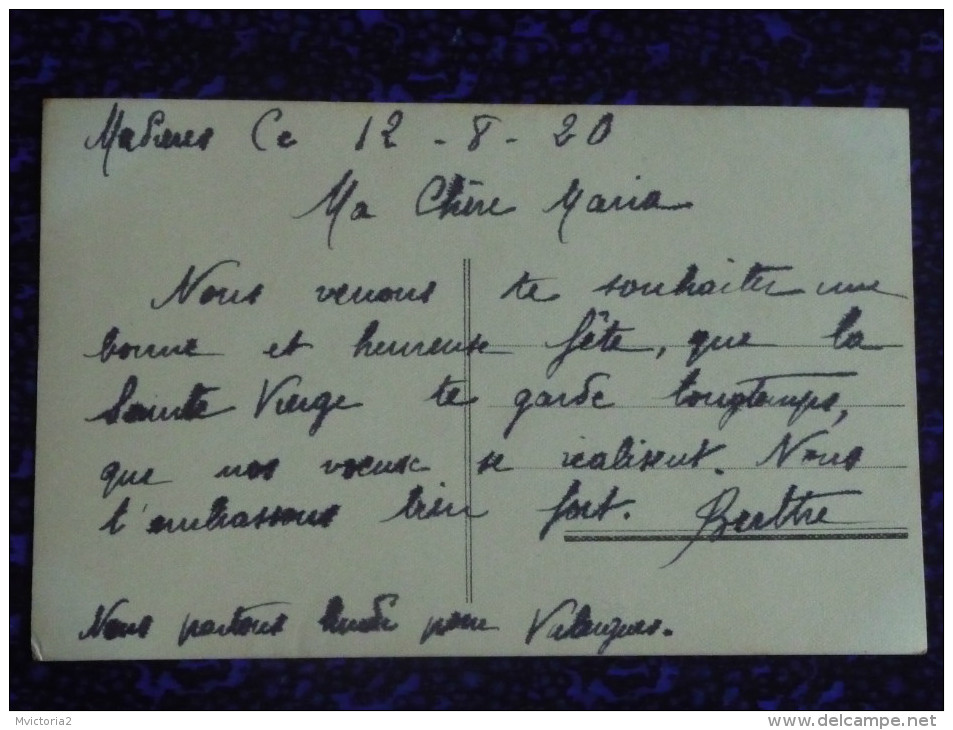 Madières Ce 12 - 8 - 20
Ma Chère Maria
Nous venons te souhaiter une
bonne et heureuse fête, que la
Sainte Vierge te garde longtemps,
que nos voeux se réalisent. Nous
t'embrassons bien fort. Berthe
Nous partons lundi pour
Mvictoria2
http://www.delcampe.net